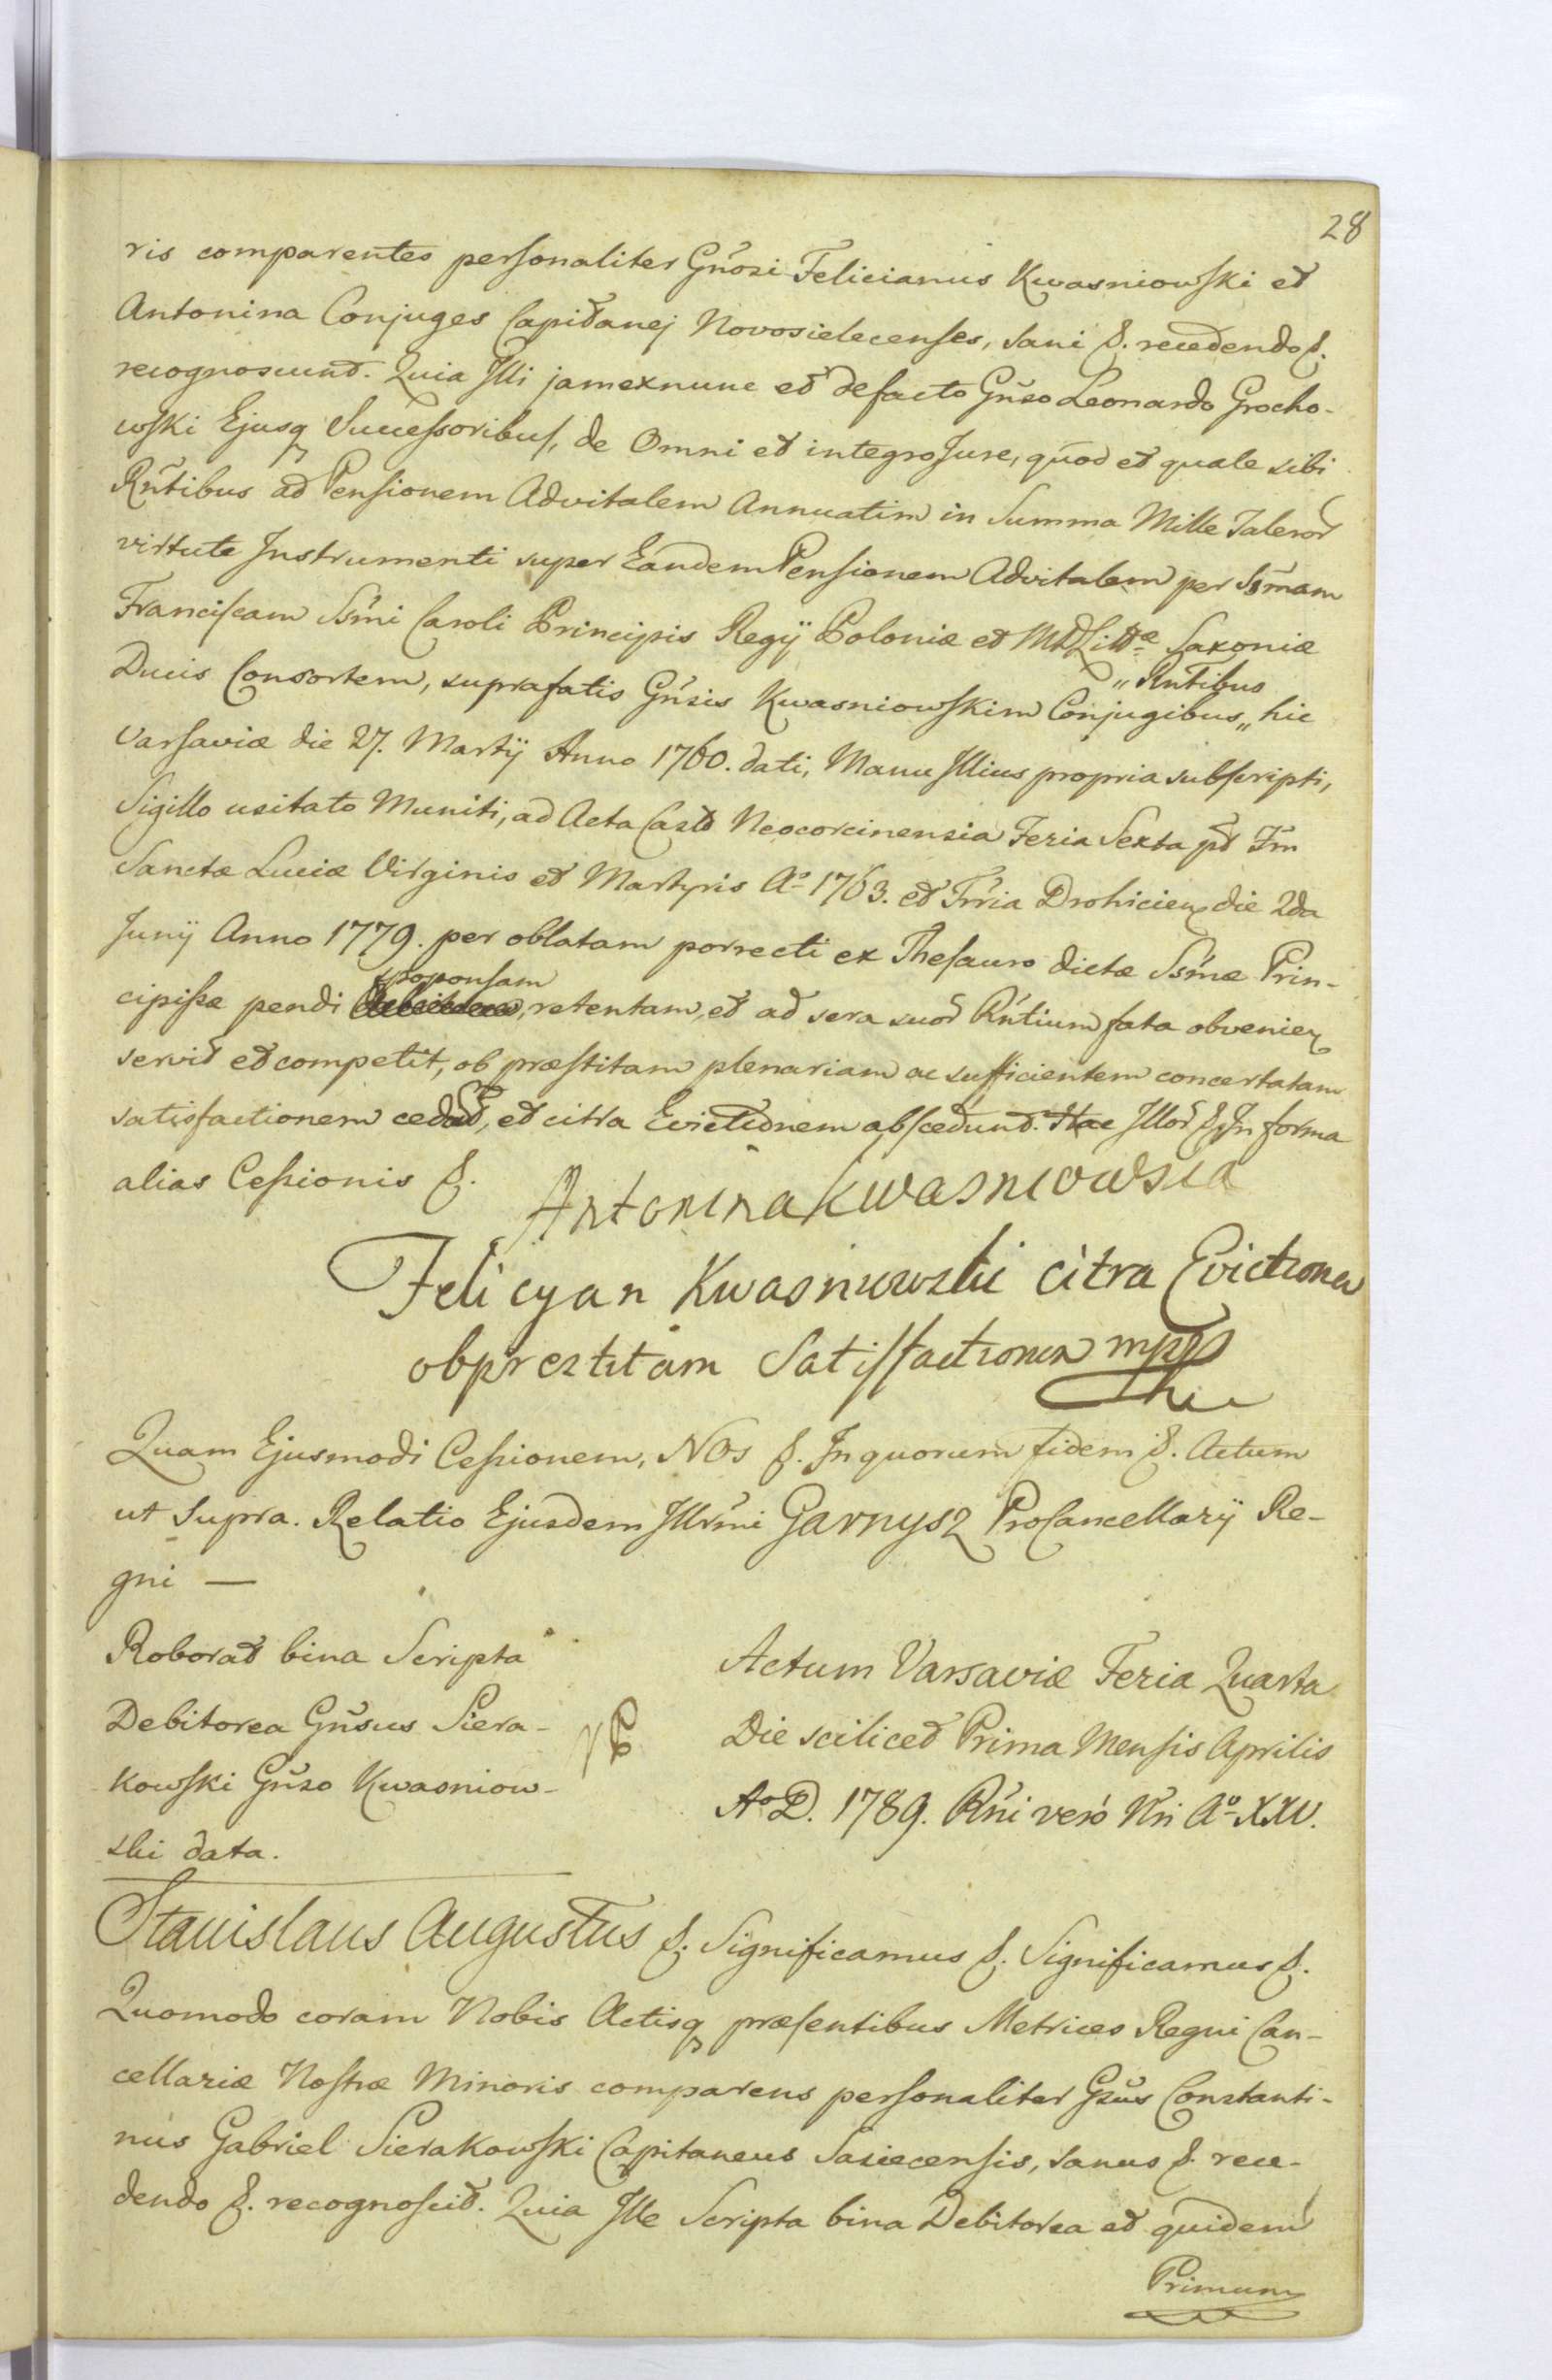 28
ris comparentes personaliter Gn̄osi Felicianus Kwasniowski et
Antonina Conjuges Capitanej Novosielecenses, sani &. recedendo &.
recognoscunt. Quia Illi jam exnunc et defacto Gn̄so Leonardo Grocho-
wski Ejusq Successoribus, de Omni et integro Jure, quod et quale sibi
Rn̄tibus ad Pensionem Advitalem Annuatim in Summa Mille Taleror
virtute Instrumenti super Eandem Pensionem Advitalem per Ss̄mam
Franciscam Ss̄mi Caroli Principis Regÿ Poloniæ et MDLittæ Saxoniæ
Ducis Consortem, suprafatis Gn̄sis Kwasniowskim Conjugibus „ Rn̄tibus „ hic
Varsaviæ die 27. Martÿ Anno 1760. dati, Manu Illius propria subscripti,
Sigillo usitato Muniti, ad Acta Cast Neocorcinensia Feria Sexta pt Fm̄
Sanctæ Luciæ Virginis et Martyris Aº 1763. et Trr̄ia Drohicien die 2da
Junÿ Anno 1779. per oblatam porrecti ex Thesauro dictæ Ss̄mæ Prin-
cipissæ pendi sposponsam, retentam, et ad sera suor Rn̄tium fata obvenien
servit et competit, ob præstitam plenariam ac sufficientem concertatam
satisfactionem cedunt, et citra Evictionem abscedunt. Hac Illor & In forma
alias Cessionis &.
Antonina Kwasniowska
Felicyan Kwasniowski citra Evictionem
obprestitam Satisfactionem mpp
Quam Ejusmodi Cessionem, NOs &. In quorum fidem &. Actum
ut Supra. Relatio Ejusdem Illr̄mi Garnysz ProCancellarÿ Re-
gni —
Roborat bina Scripta
Debitorea Gn̄sus Siera-
kowski Gn̄so Kwasniow-
ski data.
Actum Varsaviæ Feria Quarta
Die scilicet Prima Mensis Aprilis
AºD. 1789. Rn̄i verò Nr̄i Aº XXV.
Stanislaus Augustus &. Significamus &. Significamus &.
Quomodo coram Nobis Actisq præsentibus Metrices Regni Can-
cellariæ Nostræ Minoris comparens personaliter Gsūs Constanti-
nus Gabriel Sierakowski Capitaneus Sasiecensis, sanus &. rece-
dendo &. recognoscit. Quia Ille Scripta bina Debitorea et quidem
Primum